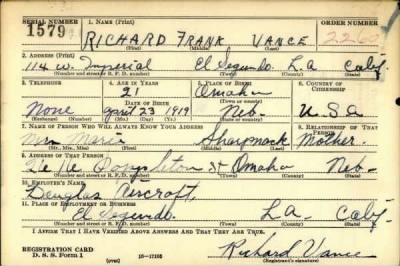 SERIAL NUMBER 1. NAME (Print) ORDER NUMBER
1579 RICHARD FRANK VANCE
(First) (Middle) (Last)
2. ADDRESS (Print)
114 W. Imperial El Segundo L.A Calif.
(Number and street or R. F. D. number) (Town) (County) (State)
3. TELEPHONE 4. AGE IN YEARS 5. PLACE OF BIRTH 6. COUNTRY OF CITIZENSHIP
21 Omaha
DATE OF BIRTH (Town or county)
None April 23 1919 Neb. U.S.A
(Exchange) (Number) (Mo.) (Day) (Yr.) (State or country)
7. NAME OF PERSON WHO WILL ALWAYS KNOW YOUR ADDRESS 8. RELATIONSHIP OF THAT PERSON
Mrs Marie Mother
(Mr., Mrs., Miss) (First) (Middle) (Last)
9. ADDRESS OF THAT PERSON
St Omaha Neb.
(Number and street or R. F. D. number) (Town) (County) (State)
10. EMPLOYER'S NAME
Douglas Aircraft
11. PLACE OF EMPLOYMENT OR BUSINESS
El Segundo. L.A. Calif.
(Number and street or R. F. D. number) (Town) (County) (State)
I AFFIRM THAT I HAVE VERIFIED ABOVE ANSWERS AND THAT THEY ARE TRUE.
REGISTRATION CARD
D. S. S. Form 1 (over) 16—17105 Richard Vance
(Registrant's signature)